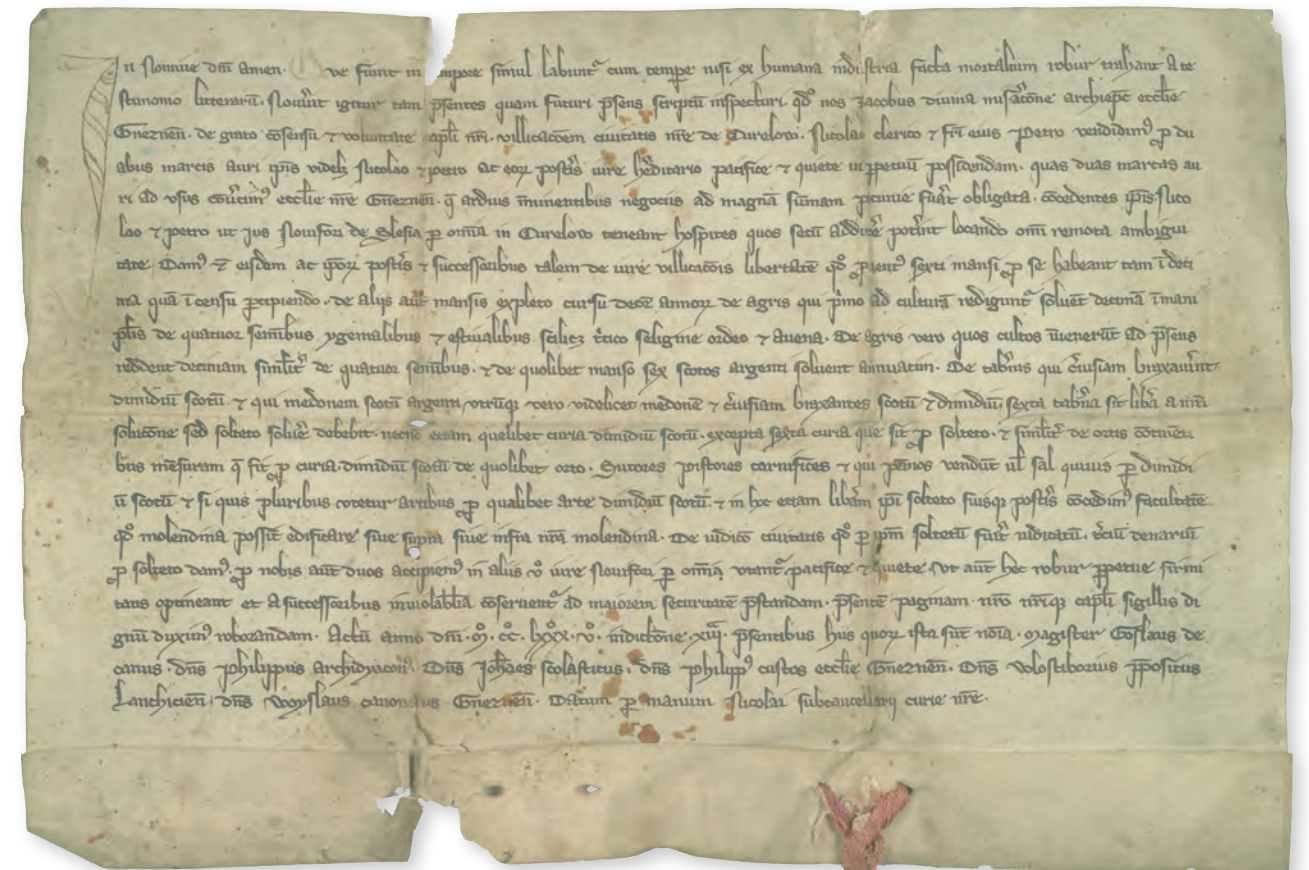 In Nomine dni amen. ve fiunt in empore simul labuntr cum tempe nisi ex humana industria facta mortalium robur trahant a te
stimonio litterarū. Nouīnt igitur tam p̄sentes quam futuri p̄sens scriptū inspecturi. qd nos Jacobus diuina mis̄atōne archiep̄c eccl̄ie
Gneznen̄. de grato cōsensu ⁊ voluntate capl̄i nr̄i. villicacōem ciuitatis nr̄e de Curelow. Nicolao clerico ⁊ fr̄i eius Petro vendidim⁹ ꝓ du
abus marcis auri ip̄is videlꝫ Nicolao ⁊ petro ac eoꝝ post̄is iure h̄editario pacifice ⁊ quiete in ꝑpetuū possidendam. quas duas marcas au
ri ad vsus cōu̇tim⁹ eccl̄ie nr̄e Gneznen̄. q̄ arduis īminentibus negociis ad magnā sūmam pecunie fūat obligata. cōcedentes ip̄is Nico
lao ⁊ petro ut Jus Nouifori de Slesia ꝑ om̄ia in Curelow teneant hospites quos secū adduxē potīnt locando om̄i remota ambigui
tate. Dam⁹ ⁊ eisdem ac ip̄oꝝ post̄is ⁊ successoribus talem de iure villicacōis libertatē qd ꝓuent⁹ sexti mansi ꝓ se habeant tam ī deci
ma quā ī censu ꝑcipiendo. de alijs aūt mansis expleto cursu decē annoꝝ de agris qui p̄mo ad culturā rediguntr soluēt decimā ī manī
pl̄is de quatuor seminibus. ygemalibus ⁊ estiualibus. scilicꝫ t̄tico seligine ordeo ⁊ auena. De agris vero quos cultos inuenerūt ad p̄sens
reddent decimam simil̄it de quatuor seminibus. ⁊ de quolibet manso sex scotos argenti soluent annuatim. De tab̄nis qui c̄uisiam braxauīnt
dimidiū scotū. ⁊ qui medonem scotū argenti vtrūqꝫ vero videlicet medonē ⁊ c̄uisiam braxantes scotū ⁊ dimidiū. sexta tab̄na sit lib̄a a nr̄a
solucōne sed solteto soluē debebit. necnō etiam quelibet curia dimidiū scotū. excepta sexta curia que sit ꝓ solteto. ⁊ simil̄it de ortis cōtinēti
bus mēsuram q̄ fit ꝓ curia. dimidiū scotū de quolibet orto. Sutores pistores carnifices ⁊ qui pānos vendūt ul̄ sal quiuis ꝑ dimidi
ū scotū ⁊ si quis pluribus vtetur artibus ꝓ qualibet arte dimidiū scotū. ⁊ in hoc etiam lib̄am ip̄i solteto suisqꝫ post̄is cōcedim⁹ facultatē
qd molendina possīt edificare siue supra siue infra nr̄a molendina. De iudicō ciuitatis qd ꝑ ip̄m soltetū fūit iudicatū. t̄ciū denariū
ꝓ solteto dam⁹. ꝓ nobis aūt duos accipiem⁹ in aliis v̊ iure Nouifori ꝑ om̄ia vtantr pacifice ⁊ quiete. Vt aūt hec robur ꝑpetue firmi
tatis optineant et a successoribus inuiolabl̄ia cōseruentr ad maiorem securitatē p̄standam. p̄sentē paginam. nr̄o nr̄iqꝫ capl̄i sigillis di
gnū duxim⁹ roborandam. Actū anno dnī. ͦM. ͦCC. ͦLXXX. ͦV. indictōne. xiij. p̄sentibus hiis quoꝝ ista sūt nōia. Magister Goslaus de
canus. dn̄s philippus archidyacon⁹. Dn̄s Joh̄nes scolasticus. dn̄s philipp⁹ custos eccl̄ie Gneznen̄. Dn̄s Volostiborius p̄positus
Lanchicien̄. dn̄s Woyslaus canonicus Gneznen̄. Datum ꝑ manum Nicolai subcancellarij curie nr̄e.